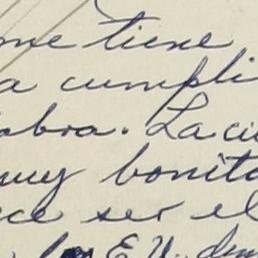 me tiene
a cumpli
abra. La ciu
muy bonita
ece ser el
los E.U. dom